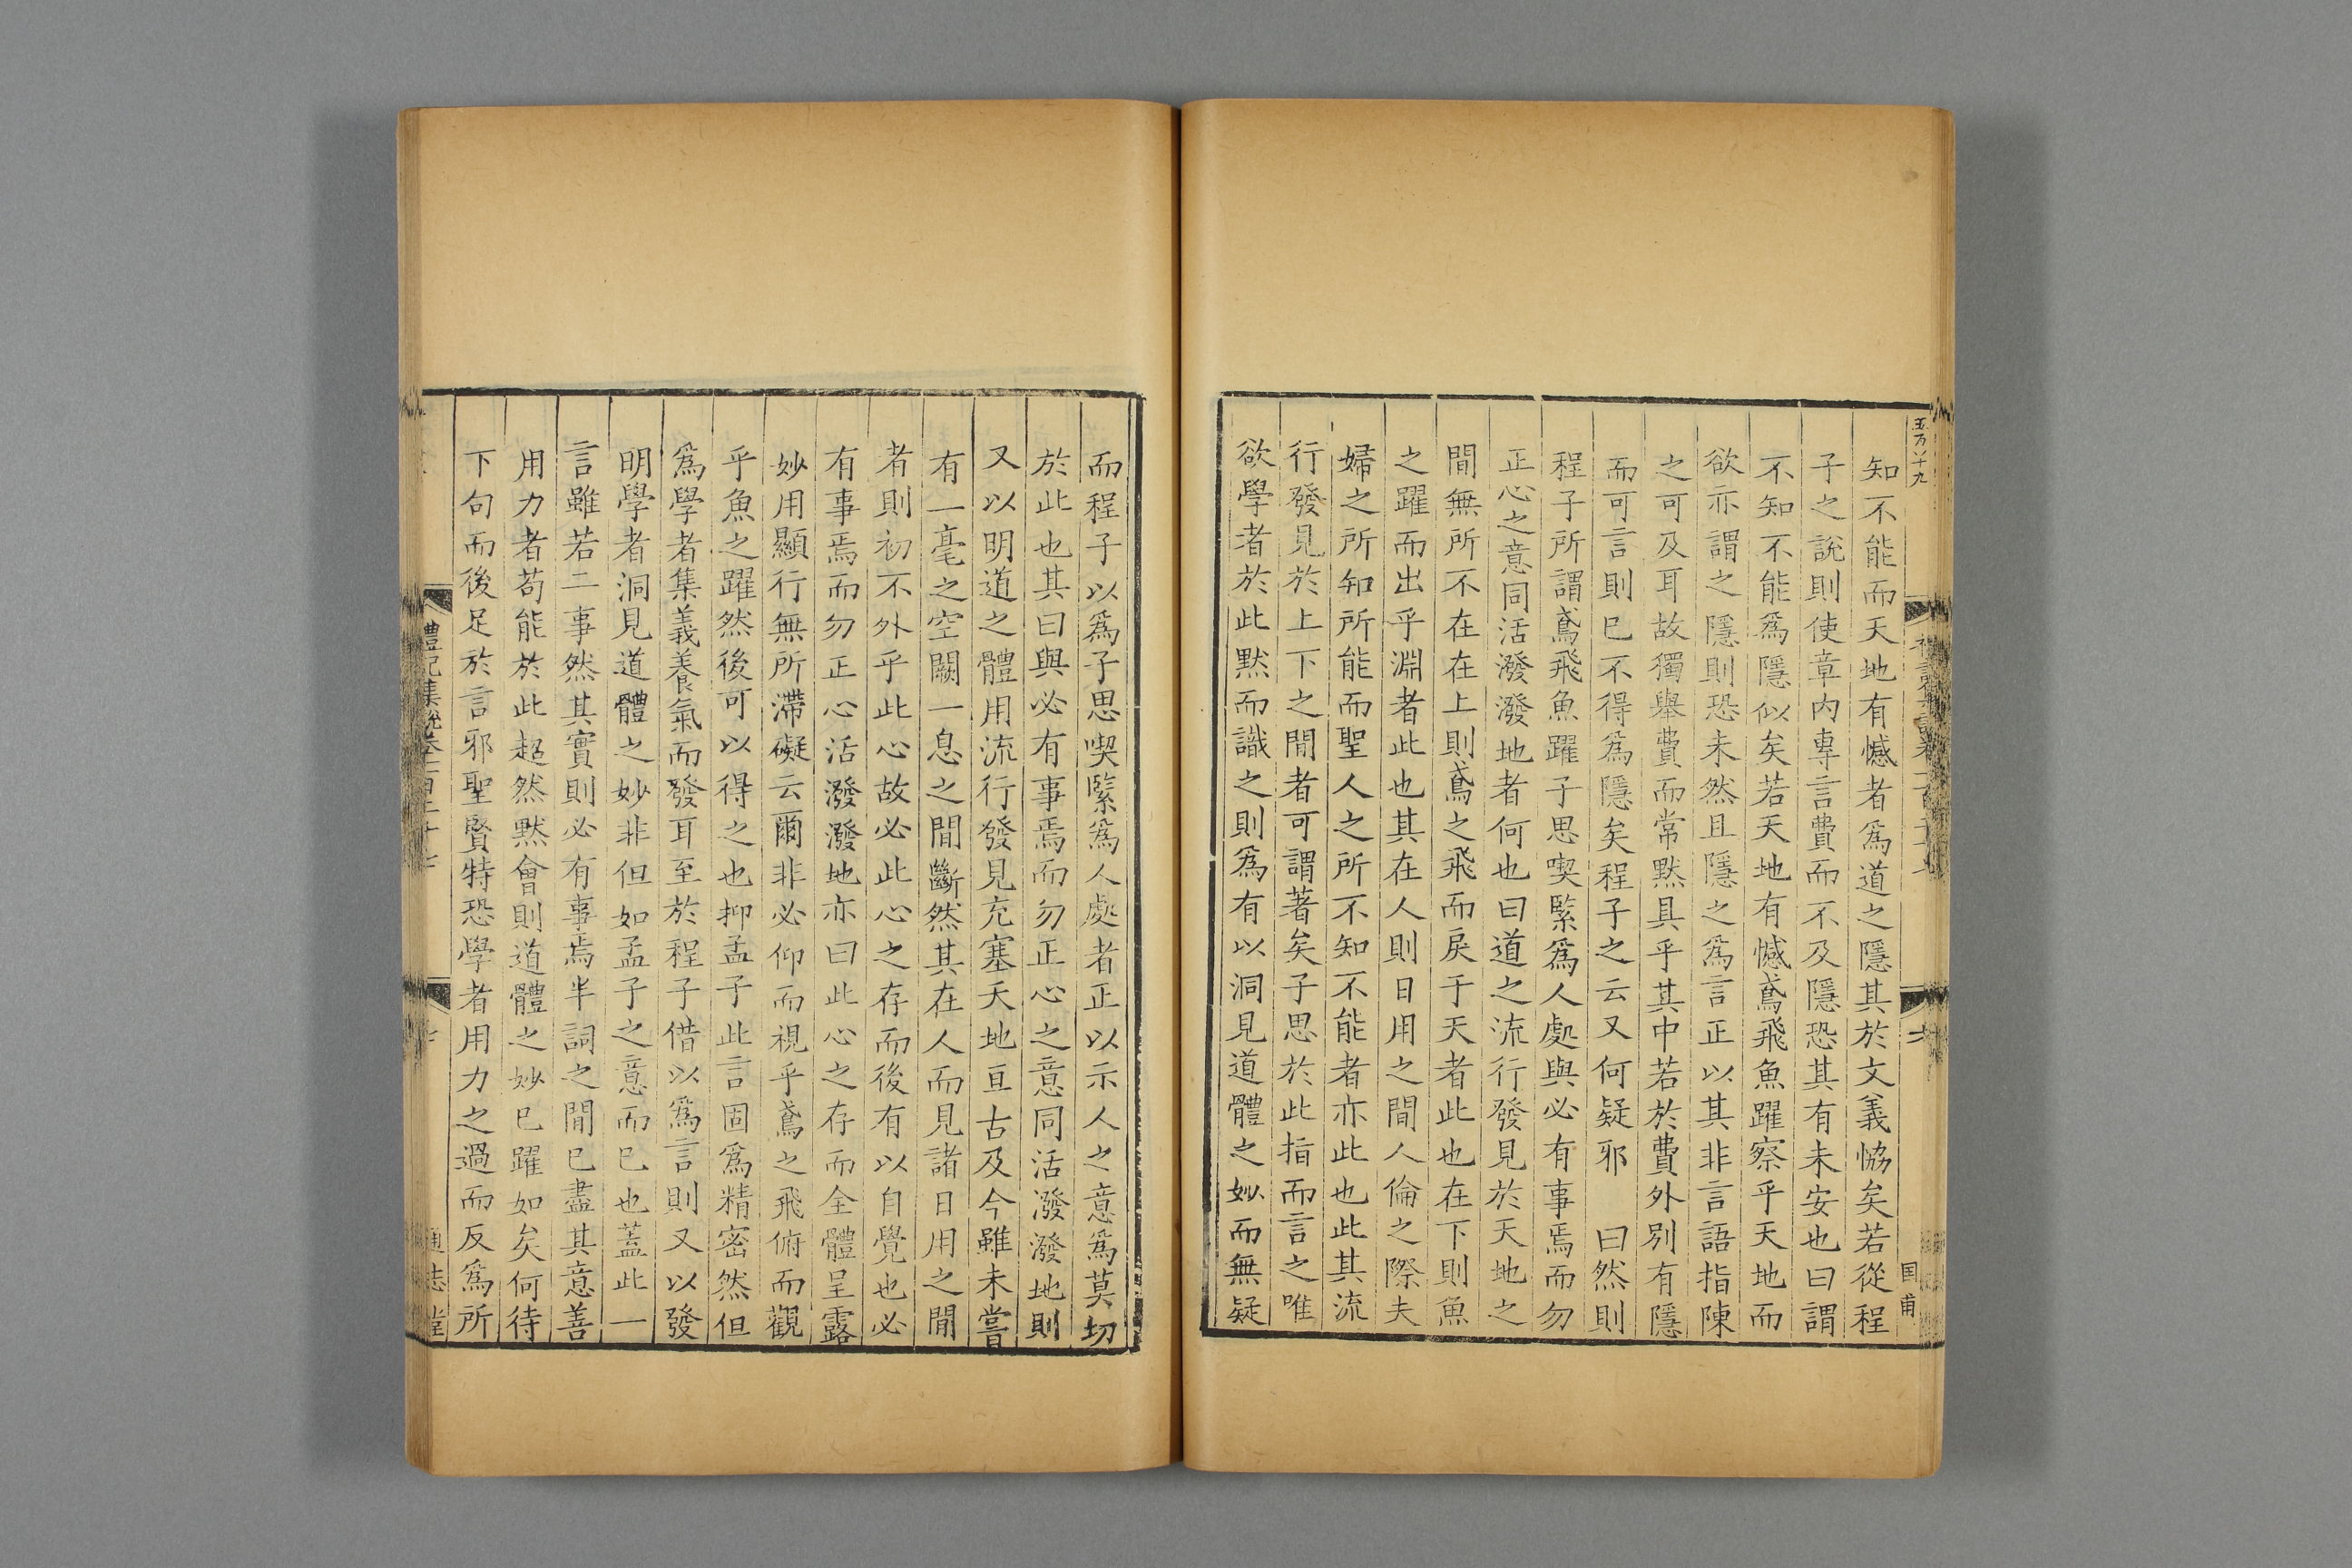 知不能而天地有憾者爲道之隱其於文義恊矣若從程
子之說則使章內專言費而不及隱恐其有未安也曰謂
不知不能爲隱似矣若天地有憾鳶飛魚躍察乎天地而
欲亦謂之隱則恐未然且隱之爲言正以其非言語指陳
之可及耳故獨舉費而常默具乎其中若於費外別有隱
而可言則已不得爲隱矣程子之云又何疑邪　曰然則
程子所謂鳶飛魚躍子思喫緊爲人處與必有事焉而勿
正心之意同活潑潑地者何也曰道之流行發見於天地之
間無所不在在上則鳶之飛而戾于天者此也在下則魚
之躍而出乎淵者此也其在人則日用之間人倫之際夫
婦之所知所能而聖人之所不知不能者亦此也此其流
行發見於上下之間者可謂著矣子思於此指而言之唯
欲學者於此默而識之則爲有以洞見道體之妙而無疑
国甫
而程子以爲子思喫緊爲人處者正以示人之意爲莫切
於此也其曰與必有事焉而勿正心之意同活潑潑地則
又以明道之體用流行發見充塞天地亘古及今雖未嘗
有一毫之空闕一息之間斷然其在人而見諸日用之間
者則初不外乎此心故必此心之存而後有以自覺也必
有事焉而勿正心活潑潑地亦曰此心之存而全體呈露
妙用顯行無所滯礙云爾非必仰而視乎鳶之飛俯而觀
乎魚之躍然後可以得之也抑孟子此言固爲精密然但
爲學者集義養氣而發耳至於程子借以爲言則又以發
明學者洞見道體之妙非但如孟子之意而已也蓋此一
言雖若二事然其實則必有事焉半詞之間已盡其意善
用力者苟能於此超然默會則道體之妙已躍如矣何待
下句而後足於言邪聖賢特恐學者用力之過而反爲所
禮記集說卷一百二十七
通志堂